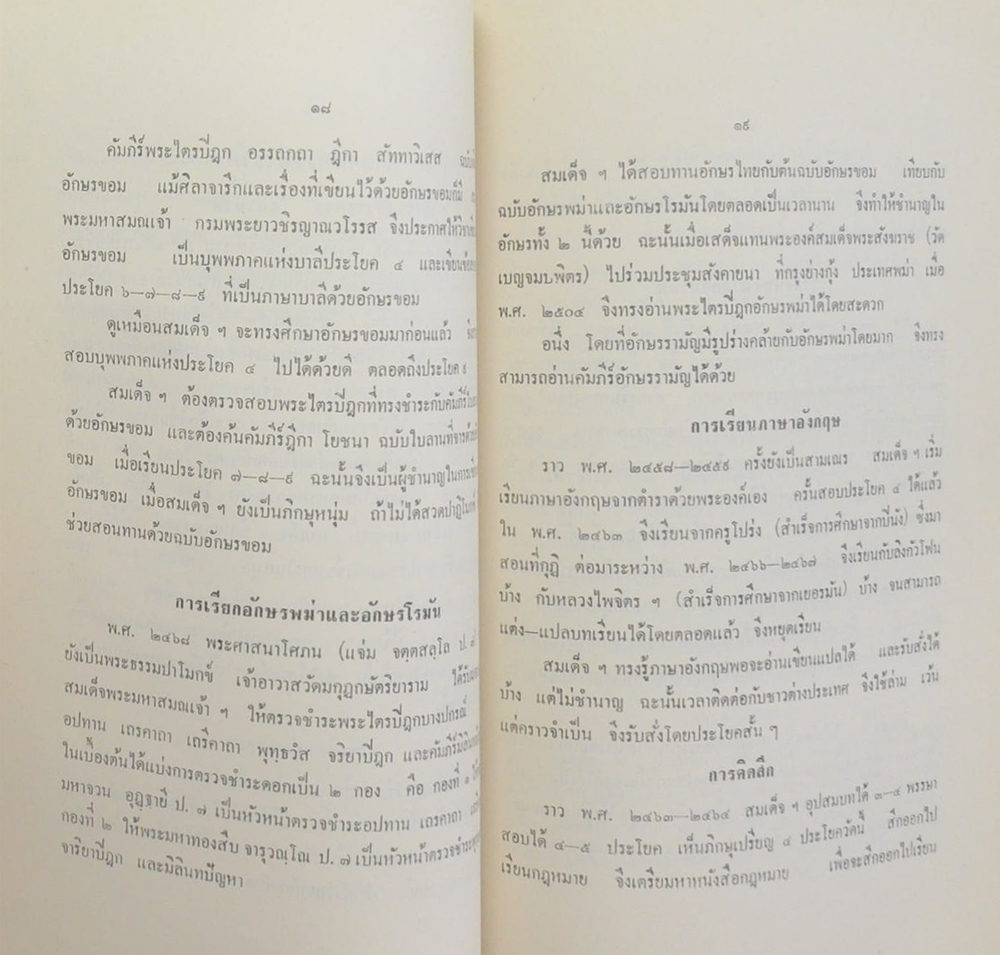 ๑๘
คัมภีร์พระไตรปิฎก อรรถกถา ฎีกา สัททาวิเสส
อักษรขอม แม้ศิลาจารึกและเรื่องที่เขียนไว้ด้วยอักษรขอมก็มี
พระมหาสมณเจ้า กรมพระยาวชิรญาณวโรรส จึงประกาศให้
อักษรขอม เป็นบุพพภาคแห่งบาลีประโยค ๔ และเขียน
ประโยค ๖—๗—๘—๙ ที่เป็นภาษาบาลีด้วยอักษรขอม
ดูเหมือนสมเด็จ ฯ จะทรงศึกษาอักษรขอมมาก่อนแล้ว
สอบบุพพภาคแห่งประโยค ๔ ไปได้ด้วยดี ตลอดถึงประโยค ๙
สมเด็จ ฯ ต้องตรวจสอบพระไตรปิฎกที่ทรงชำระกับคัมภีร์
ด้วยอักษรขอม และต้องค้นคัมภีร์ฎีกา โยชนา ฉบับใบลานที่จาร
ขอม เมื่อเรียนประโยค ๗—๘—๙ ฉะนั้นจึงเป็นผู้ชำนาญในการ
อักษรขอม เมื่อสมเด็จ ฯ ยังเป็นภิกษุหนุ่ม ถ้าไม่ได้สวดปาฏิโมกข์
ช่วยสอนทานด้วยฉบับอักษรขอม
การเรียกอักษรพม่าและอักษรโรมัน
พ.ศ. ๒๔๖๘ พระศาสนาโศภน (แจ่ม จตฺตสลฺโล ป. ๗
ยังเป็นพระธรรมปาโมกข์ เจ้าอาวาสวัดมกุฎกษัตริยาราม ได้รับ
สมเด็จพระมหาสมณเจ้า ฯ ให้ตรวจชำระพระไตรปิฎกบางปกรณ์
อปทาน เถรคาถา เถรีคาถา พุทฺธวํส จริยาปิฎก และคัมภีร์มิลินท
ในเบื้องต้นได้แบ่งการตรวจชำระดอกเป็น ๒ กอง คือ กองที่ ๑
มหาจวน อุฏฺฐายี ป. ๗ เป็นหัวหน้าตรวจชำระอปทาน เถรคาถา
กองที่ ๒ ให้พระมหาทองสืบ จารุวณฺโณ ป. ๗ เป็นหัวหน้าตรวจชำระ
จาริยาปิฎก และมิลินทปัญหา
๑๙
สมเด็จ ฯ ได้สอบทานอักษรไทยกับต้นฉบับอักษรขอม เทียบกับ
ฉบับอักษรพม่าและอักษรโรมันโดยตลอดเป็นเวลานาน จึงทำให้ชำนาญใน
อักษรทั้ง ๒ นี้ด้วย ฉะนั้นเมื่อเสด็จแทนพระองค์สมเด็จพระสังฆราช (วัด
เบญจมบพิตร) ไปร่วมประชุมสังคายนา ที่กรุงย่างกุ้ง ประเทศพม่า เมื่อ
พ.ศ. ๒๕๐๔ จึงทรงอ่านพระไตรปิฎกอักษรพม่าได้โดยสะดวก
อนึ่ง โดยที่อักษรรามัญมีรูปร่างคล้ายกับอักษรพม่าโดยมาก จึงทรง
สามารถอ่านคัมภีร์อักษรรามัญได้ด้วย
การเรียนภาษาอังกฤษ
ราว พ.ศ. ๒๔๕๘—๒๔๕๙ ครั้งยังเป็นสามเณร สมเด็จ ฯ เริ่ม
เรียนภาษาอังกฤษจากตำราด้วยพระองค์เอง ครั้นสอบประโยค ๔ ได้แล้ว
ใน พ.ศ. ๒๔๖๓ จึงเรียนจากครูโปร่ง (สำเร็จการศึกษาจากปีนัง) ซึ่งมา
สอนที่กุฏิ ต่อมาระหว่าง พ.ศ. ๒๔๖๖—๒๔๖๗ จึงเรียนกับลิงกัวโฟน
บ้าง กับหลวงไพจิตร ฯ (สำเร็จการศึกษาจากเยอรมัน) บ้าง จนสามารถ
แต่ง—แปลบทเรียนได้โดยตลอดแล้ว จึงหยุดเรียน
สมเด็จ ฯ ทรงรู้ภาษาอังกฤษพอจะอ่านเขียนแปลได้ และรับสั่งได้
บ้าง แต่ไม่ชำนาญ ฉะนั้นเวลาติดต่อกับชาวต่างประเทศ จึงใช้ล่าม เว้น
แต่คราวจำเป็น จึงรับสั่งโดยประโยคสั้น ๆ
การคิดสึก
ราว พ.ศ. ๒๔๖๓—๒๔๖๔ สมเด็จ ฯ อุปสมบทได้ ๓—๔ พรรษา
สอบได้ ๔—๕ ประโยค เห็นภิกษุเปรียญ ๔ ประโยควัดนี้ สึกออกไป
เรียนกฎหมาย จึงเตรียมหาหนังสือกฎหมาย เพื่อจะสึกออกไปเรียน